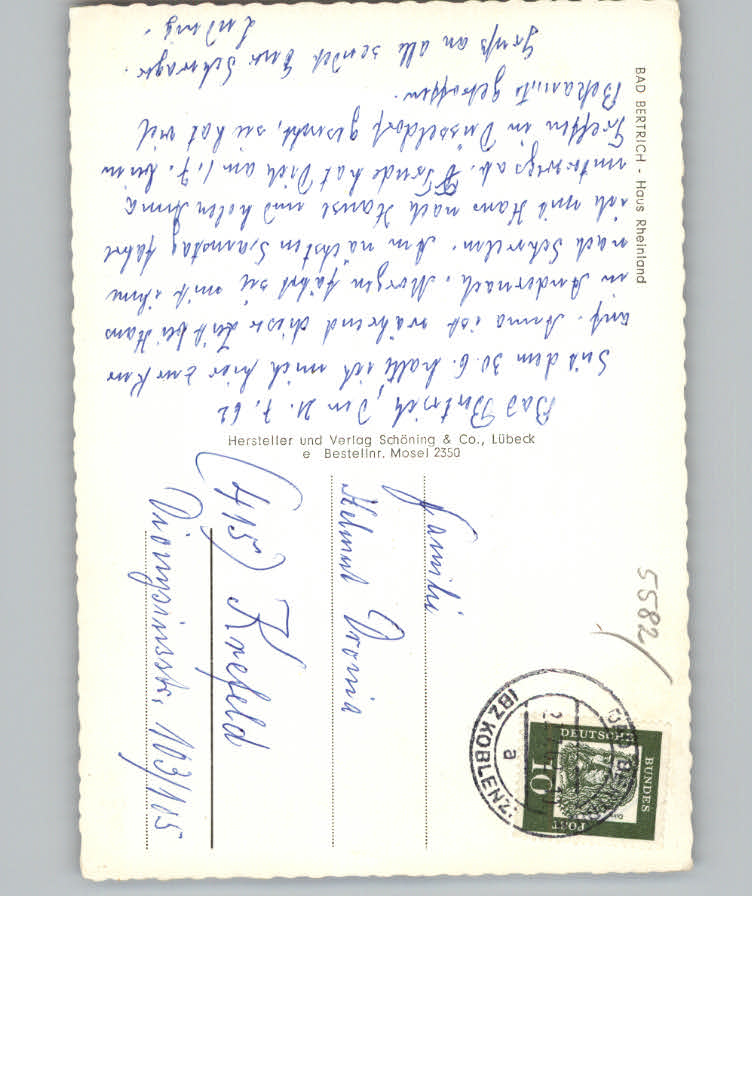 BAD BERTRICH - Haus Rheinland
Bad Bertrich, den 21.7.62
Seit dem 30.6. halte ich mich hier zur Kur
auf. Anna ist während dieser Zeit bei Hans
in Andernach. Morgen fährt sie mit ihm
nach Schwelm. Am nächsten Samstag fahre
ich mit Hans nach Hause und holen Anna
unterwegs ab. Trude hat Dich am 1.7. beim
Treffen in Düsseldorf gesucht, sie hat viel
Bekannte getroffen.
Gruß an alle sendet Euer Schwager
Ludwig.
Hersteller und Verlag Schöning & Co., Lübeck
e Bestellnr. Mosel 2350
Familie
Helmut
(415) Krefeld
Dionysiusstr. 103/105
5582/
DEUTSCHE
BUNDES
POST
10
BAD BERTRICH
(BZ KOBLENZ)
a